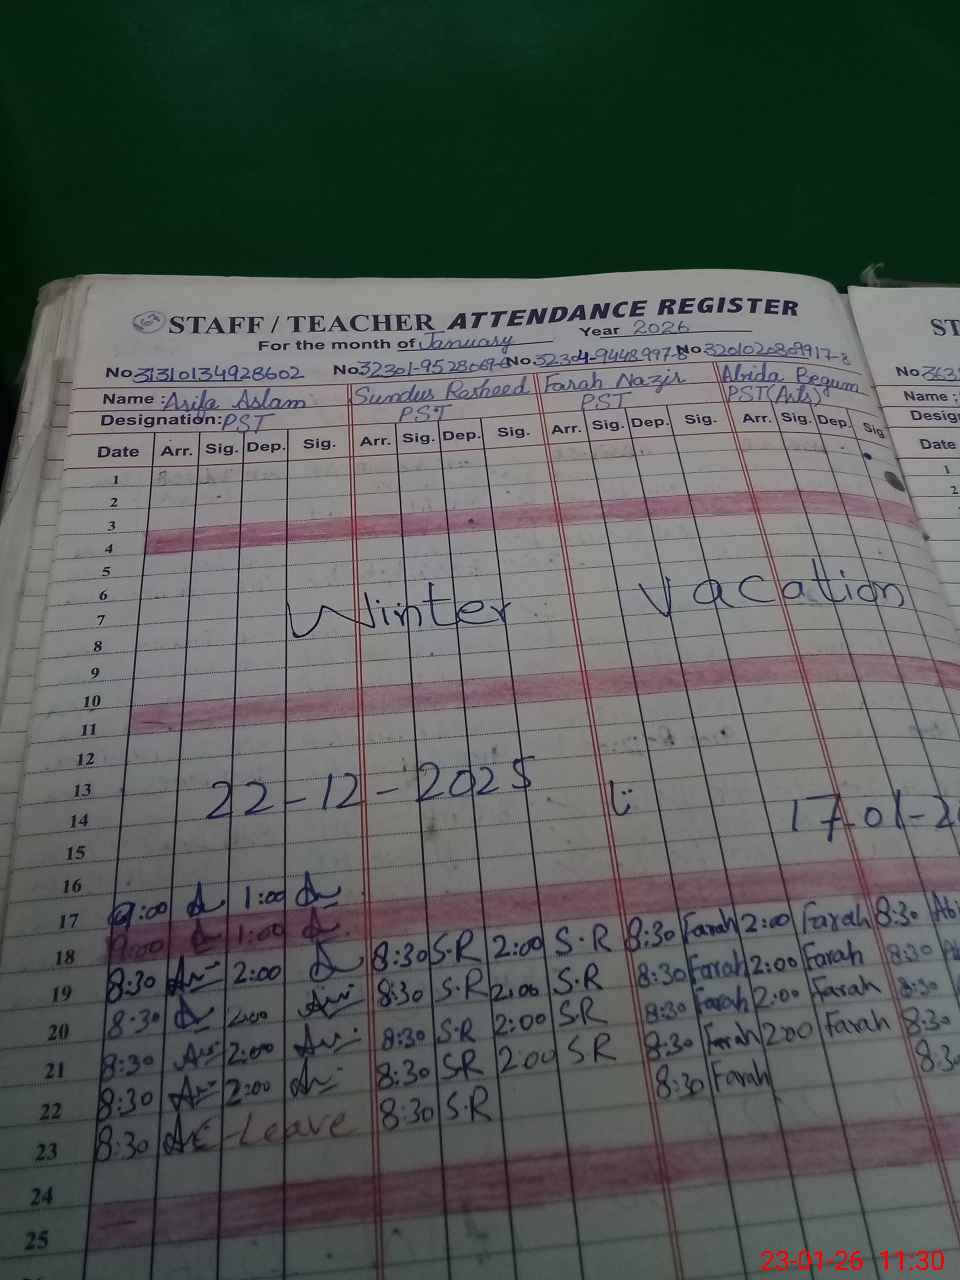 STAFF / TEACHER ATTENDANCE REGISTER
For the month of January Year 2026
No 31310134928602 No 32301-9528069- No 32304-9448997-8 No 3201020809917-8 No
Name : Asifa Aslam Sundus Rasheed Farah Nazir Abida Begum Name :
Designation: PST PST PST PST (Arts) Desig
Date Arr. Sig. Dep. Sig. Arr. Sig. Dep. Sig. Arr. Sig. Dep. Sig. Arr. Sig. Dep. Sig Date
1 1
2 2
3
4
5
6
7 Winter Vacation
8
9
10
11
12
13
14 22-12-2025 17-01-2
15
16
17 9:00 1:00
18 9:00 1:00
19 8:30 2:00 8:30 S.R 2:00 S.R 8:30 Farah 2:00 Farah 8:30 Abi
20 8:30 2:00 8:30 S.R 2:00 S.R 8:30 Farah 2:00 Farah 8:30
21 8:30 2:00 8:30 S.R 2:00 S.R 8:30 Farah 2:00 Farah 8:30
22 8:30 2:00 8:30 SR 2:00 SR 8:30 Farah 2:00 Farah 8:30
23 8:30 -Leave 8:30 S.R 8:30 Farah 8:30
24
25
23-01-26 11:30